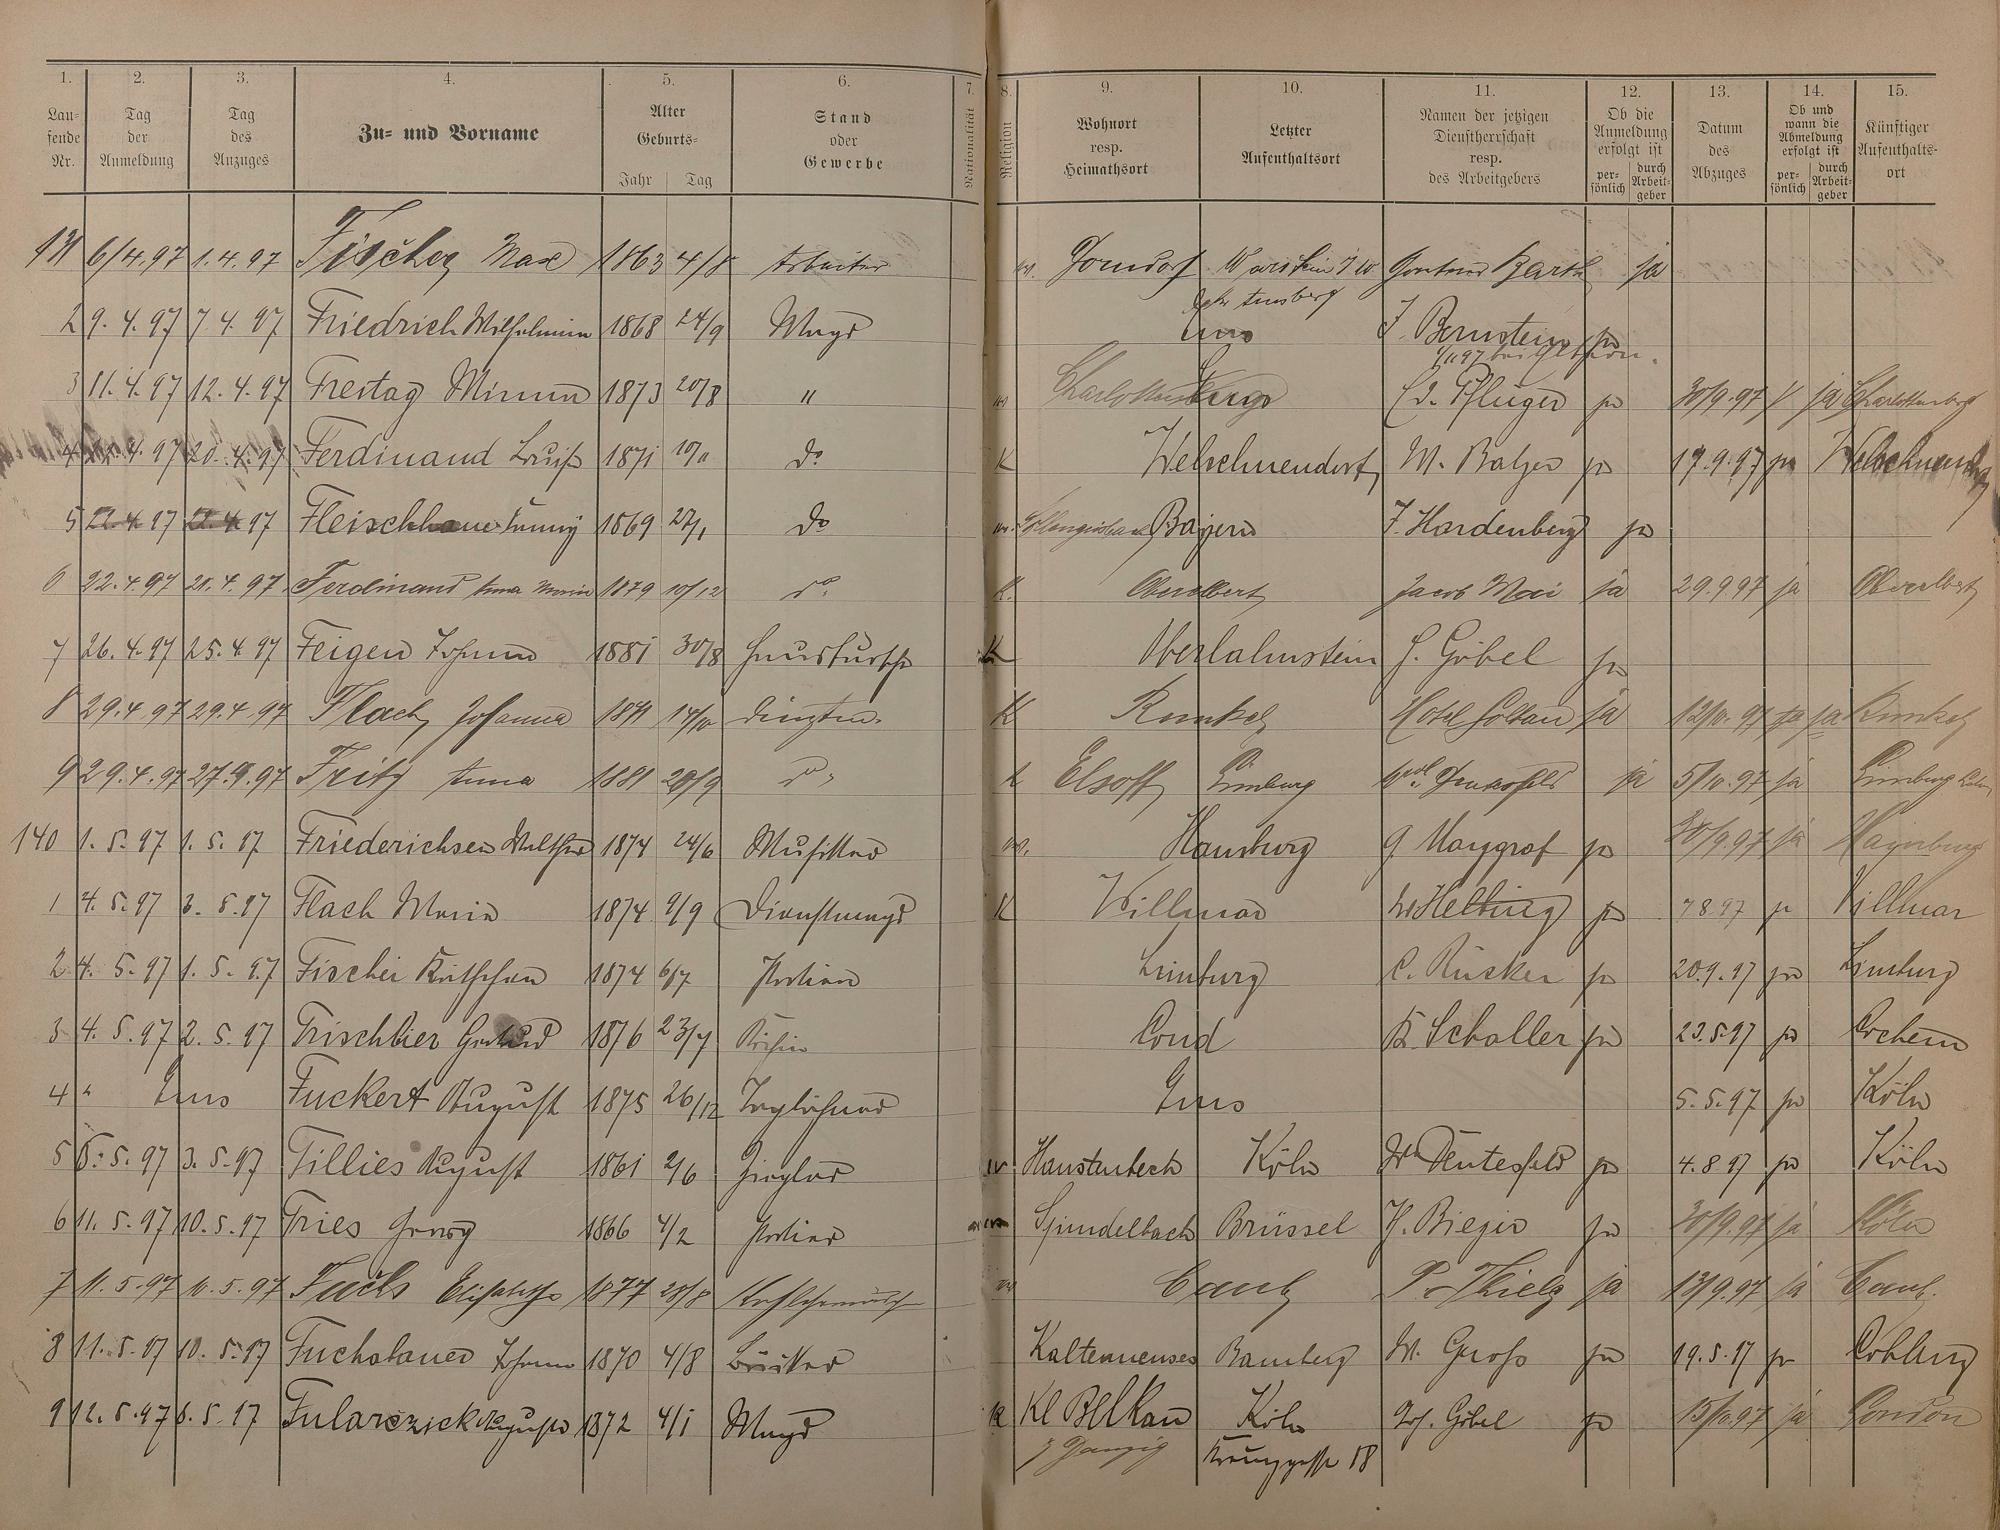 1. 2. 3. 4. 5. 6. 7. 8. 9. 10. 11. 12. 13. 14. 15.
Lau-
fende
Nr.
Tag
der
Anmeldung
Tag
des
Anzuges
Zu- und Vorname
Alter
Geburts-
Jahr Tag
Stand
oder
Gewerbe
Nationalität
Religion
Wohnort
resp.
Heimathsort
Letzter
Aufenthaltsort
Namen der jetzigen
Dienstherrschaft
resp.
des Arbeitgebers
Ob die
Anmeldung
erfolgt ist
per-
sönlich
durch
Arbeit-
geber
Datum
des
Abzuges
Ob und
wann die
Abmeldung
erfolgt ist
per-
sönlich
durch
Arbeit-
geber
Künftiger
Aufenthalts-
ort
131 6/4.97 1.4.97 Fischer Max 1863 4/8 Arbeiter Dorndorf Gärtner Barth ja
Arnsberg
2 9.4.97 7.4.97 Friedrich Wilhelmine 1868 24/9 Magd Ems J. Bernstein ja
3 11.4.97 12.4.97 Freitag Minna 1873 20/8 " Charlottenberg C. Pflüger ja 30/9.97 ja Charlottenberg
4 20.4.97 Ferdinand Louise 1871 do K Welschneudorf M. Balzer ja 17.9.97 ja Welschneudorf
5 22.4.97 Fleischhauer Fanny 1869 27/1 do Bayern J. Hardenberg ja
6 22.4.97 21.4.97 Ferdinand Anna Maria 1879 10/12 do K. Oberelbert Jacob 29.9.97 ja Oberelbert
7 26.4.97 25.4.97 Feigen Johann 1881 30/8 Hausbursche K Oberlahnstein J. Göbel ja
8 29.4.97 29.4.97 Flach Johanna 14/10 K Runkel Hotel Soltau ja 12/10.97 ja ja Runkel
9 29.4.97 27.4.97 Fritz Anna 1881 29/9 do K Elsoff Limburg ja 5/10.97 ja Limburg Lahn
140 1.5.97 1.5.97 Friederichsen Walther 1874 24/6 Musiker Hamburg G. Maygraf ja 30/9.97 ja Hamburg
1 4.5.97 3.5.97 Flach Maria 1874 9/9 Dienstmagd K Villmar Helbing ja 7.8.97 ja Villmar
2 4.5.97 1.5.97 Fischer Käthchen 1874 6/7 Limburg C. Rücker ja 20.9.97 ja Limburg
3 4.5.97 2.5.97 Frischbier Gertrud 1876 23/7 Köchin Cond K. Schaller ja 23.5.97 ja Cochem
4 " Ems Fuckert August 1875 26/12 Taglöhner Ems 5.5.97 ja Köln
5 5.5.97 3.5.97 Fillies August 1861 2/6 Ziegler Haustenbeck Köln ja 4.8.97 ja Köln
6 11.5.97 10.5.97 Fries Georg 1866 4/2 Portier Spindelbach Brüssel H. Bieger ja 30/9.97 ja Köln
7 11.5.97 10.5.97 Fuchs Elisabeth 1877 28/8 Caub P. Thielz ja 13/9.97 ja Caub.
8 11.5.97 10.5.97 Fuchsbauer Johann 1870 4/8 Bäcker Bamberg W. Groß ja 19.5.97 ja Coblenz
9 12.5.97 6.5.97 Fularczick Auguste 1872 4/1 Magd K Kl Belkau Köln Jos. Göbel ja 15/10.97 ja London
b Danzig 18